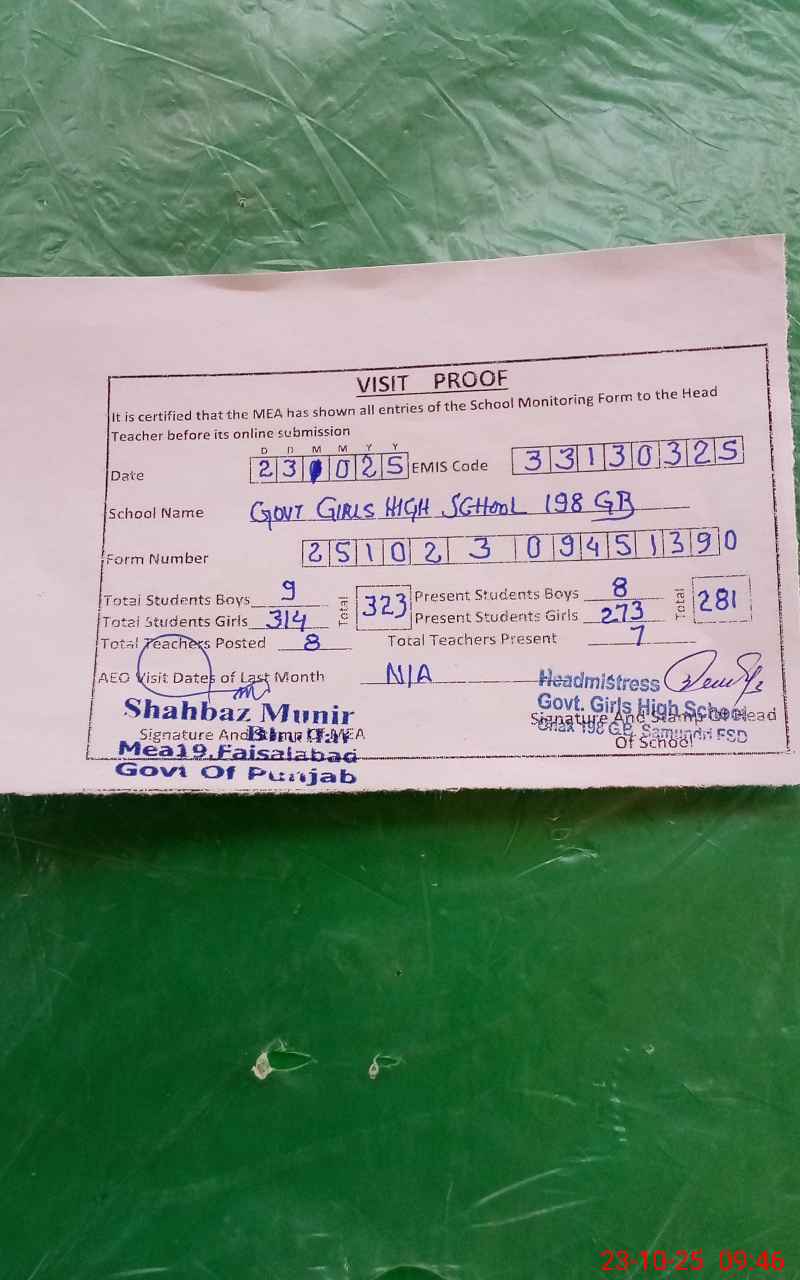 VISIT PROOF
It is certified that the MEA has shown all entries of the School Monitoring Form to the Head
Teacher before its online submission
D D M M Y Y
Date 23 1 0 2 5 EMIS Code 33130325
School Name GOVT GIRLS HIGH SCHOOL 198 GB
Form Number 25102309451390
Total Students Boys 9 Total 323 Present Students Boys 8 Total 281
Total Students Girls 314 Present Students Girls 273
Total Teachers Posted 8 Total Teachers Present 7
AEO Visit Dates of Last Month N/A
Headmistress
Shahbaz Munir Govt. Girls High School
Signature And Stamp Of MEA Signature And Stamp Of Head
Chak 198 G.B. Samundri FSD
Mea19,Faisalabad Of School
Govt Of Punjab
23-10-25 09:46